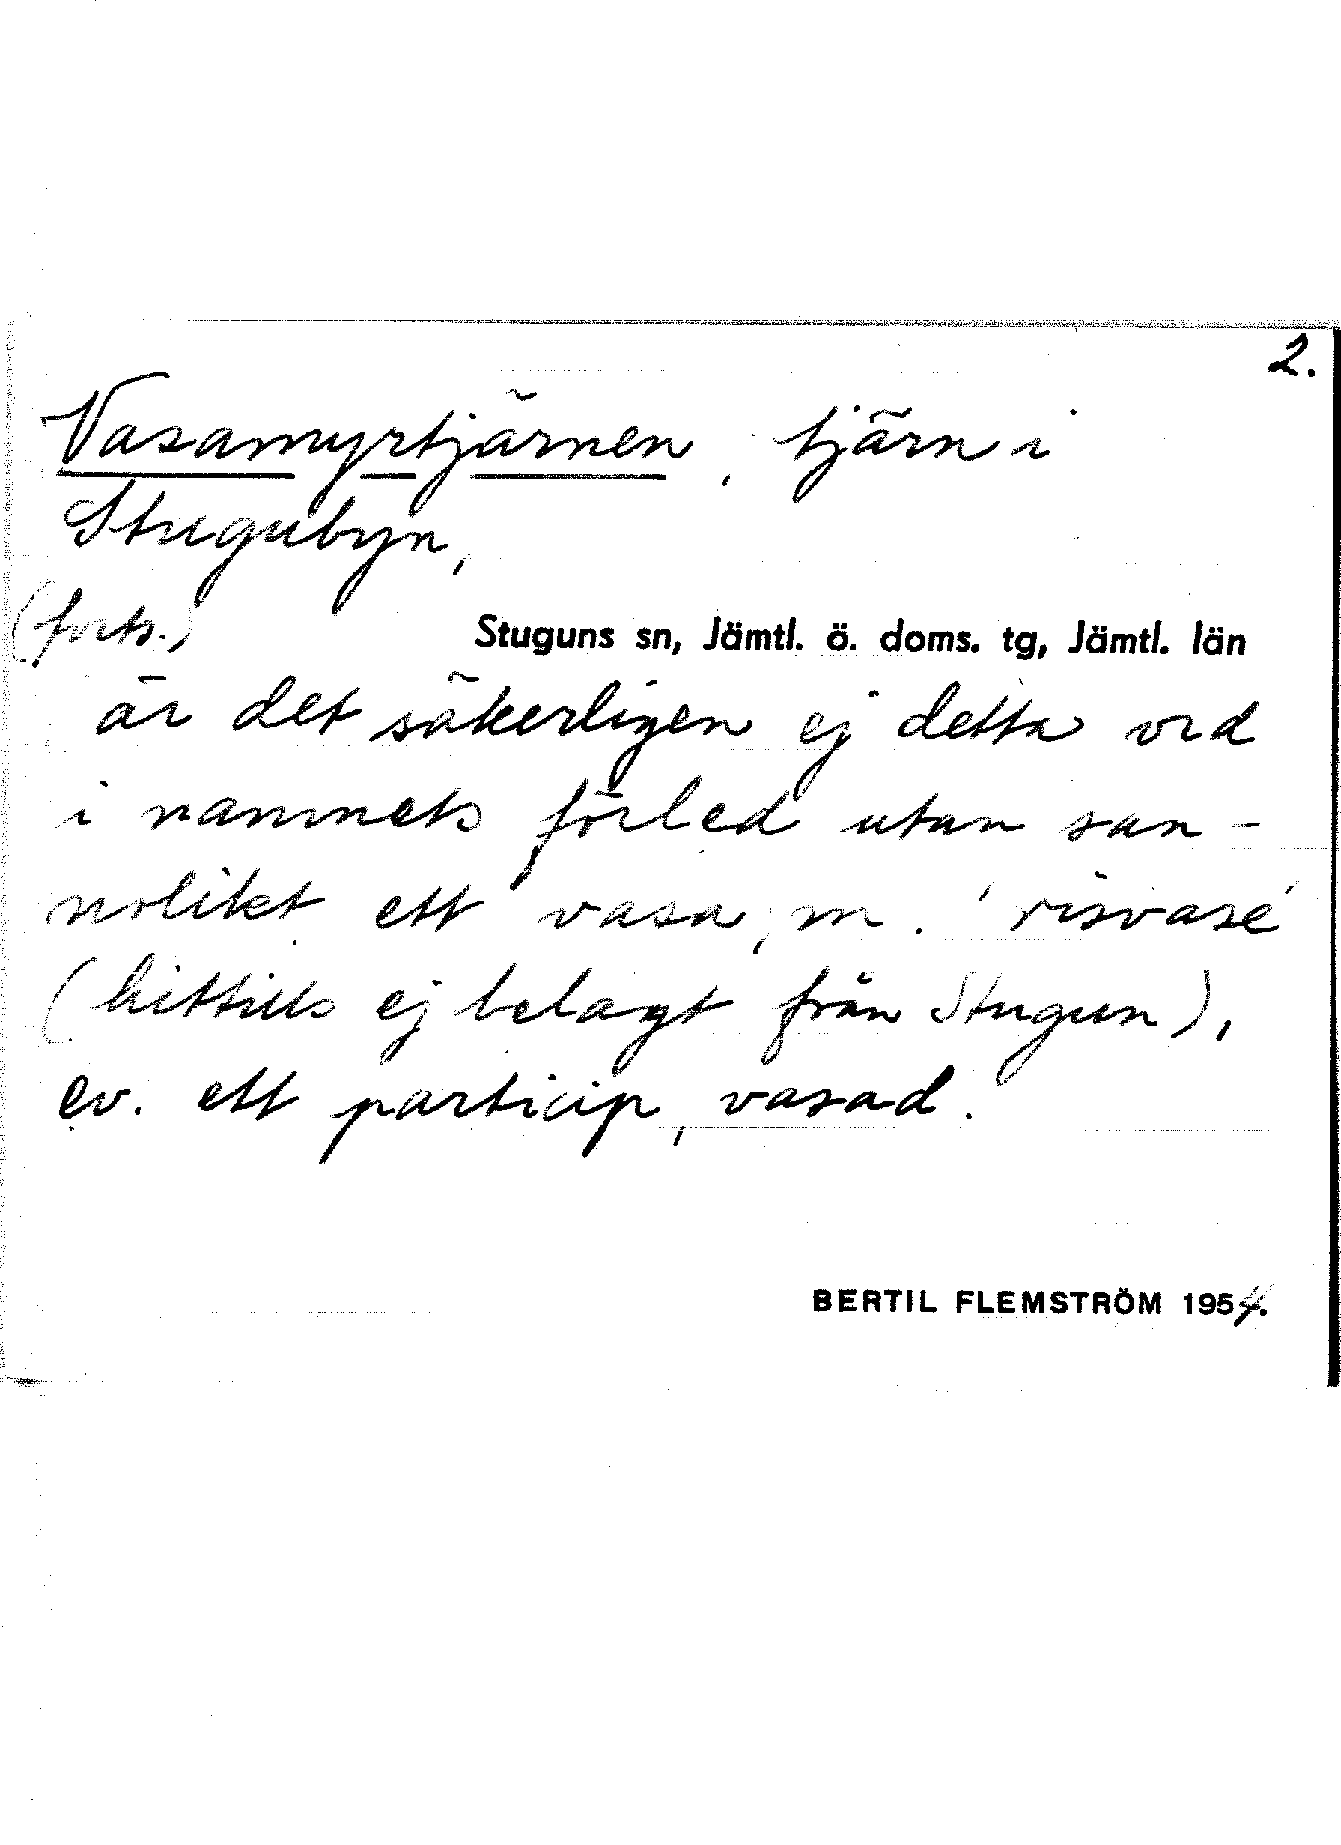 2.
Vasamyrtjärnen, tjärn i
Stugubyn,
(forts.)
Stuguns sn, Jämtl. ö. doms. tg, Jämtl. län
är det säkerligen ej detta ord
i namnets förled utan san-
nolikt ett vasa, m. 'risvase'
(hittills ej belagt från Stugun),
ev. ett particip, vasad.
BERTIL FLEMSTRÖM 1954.